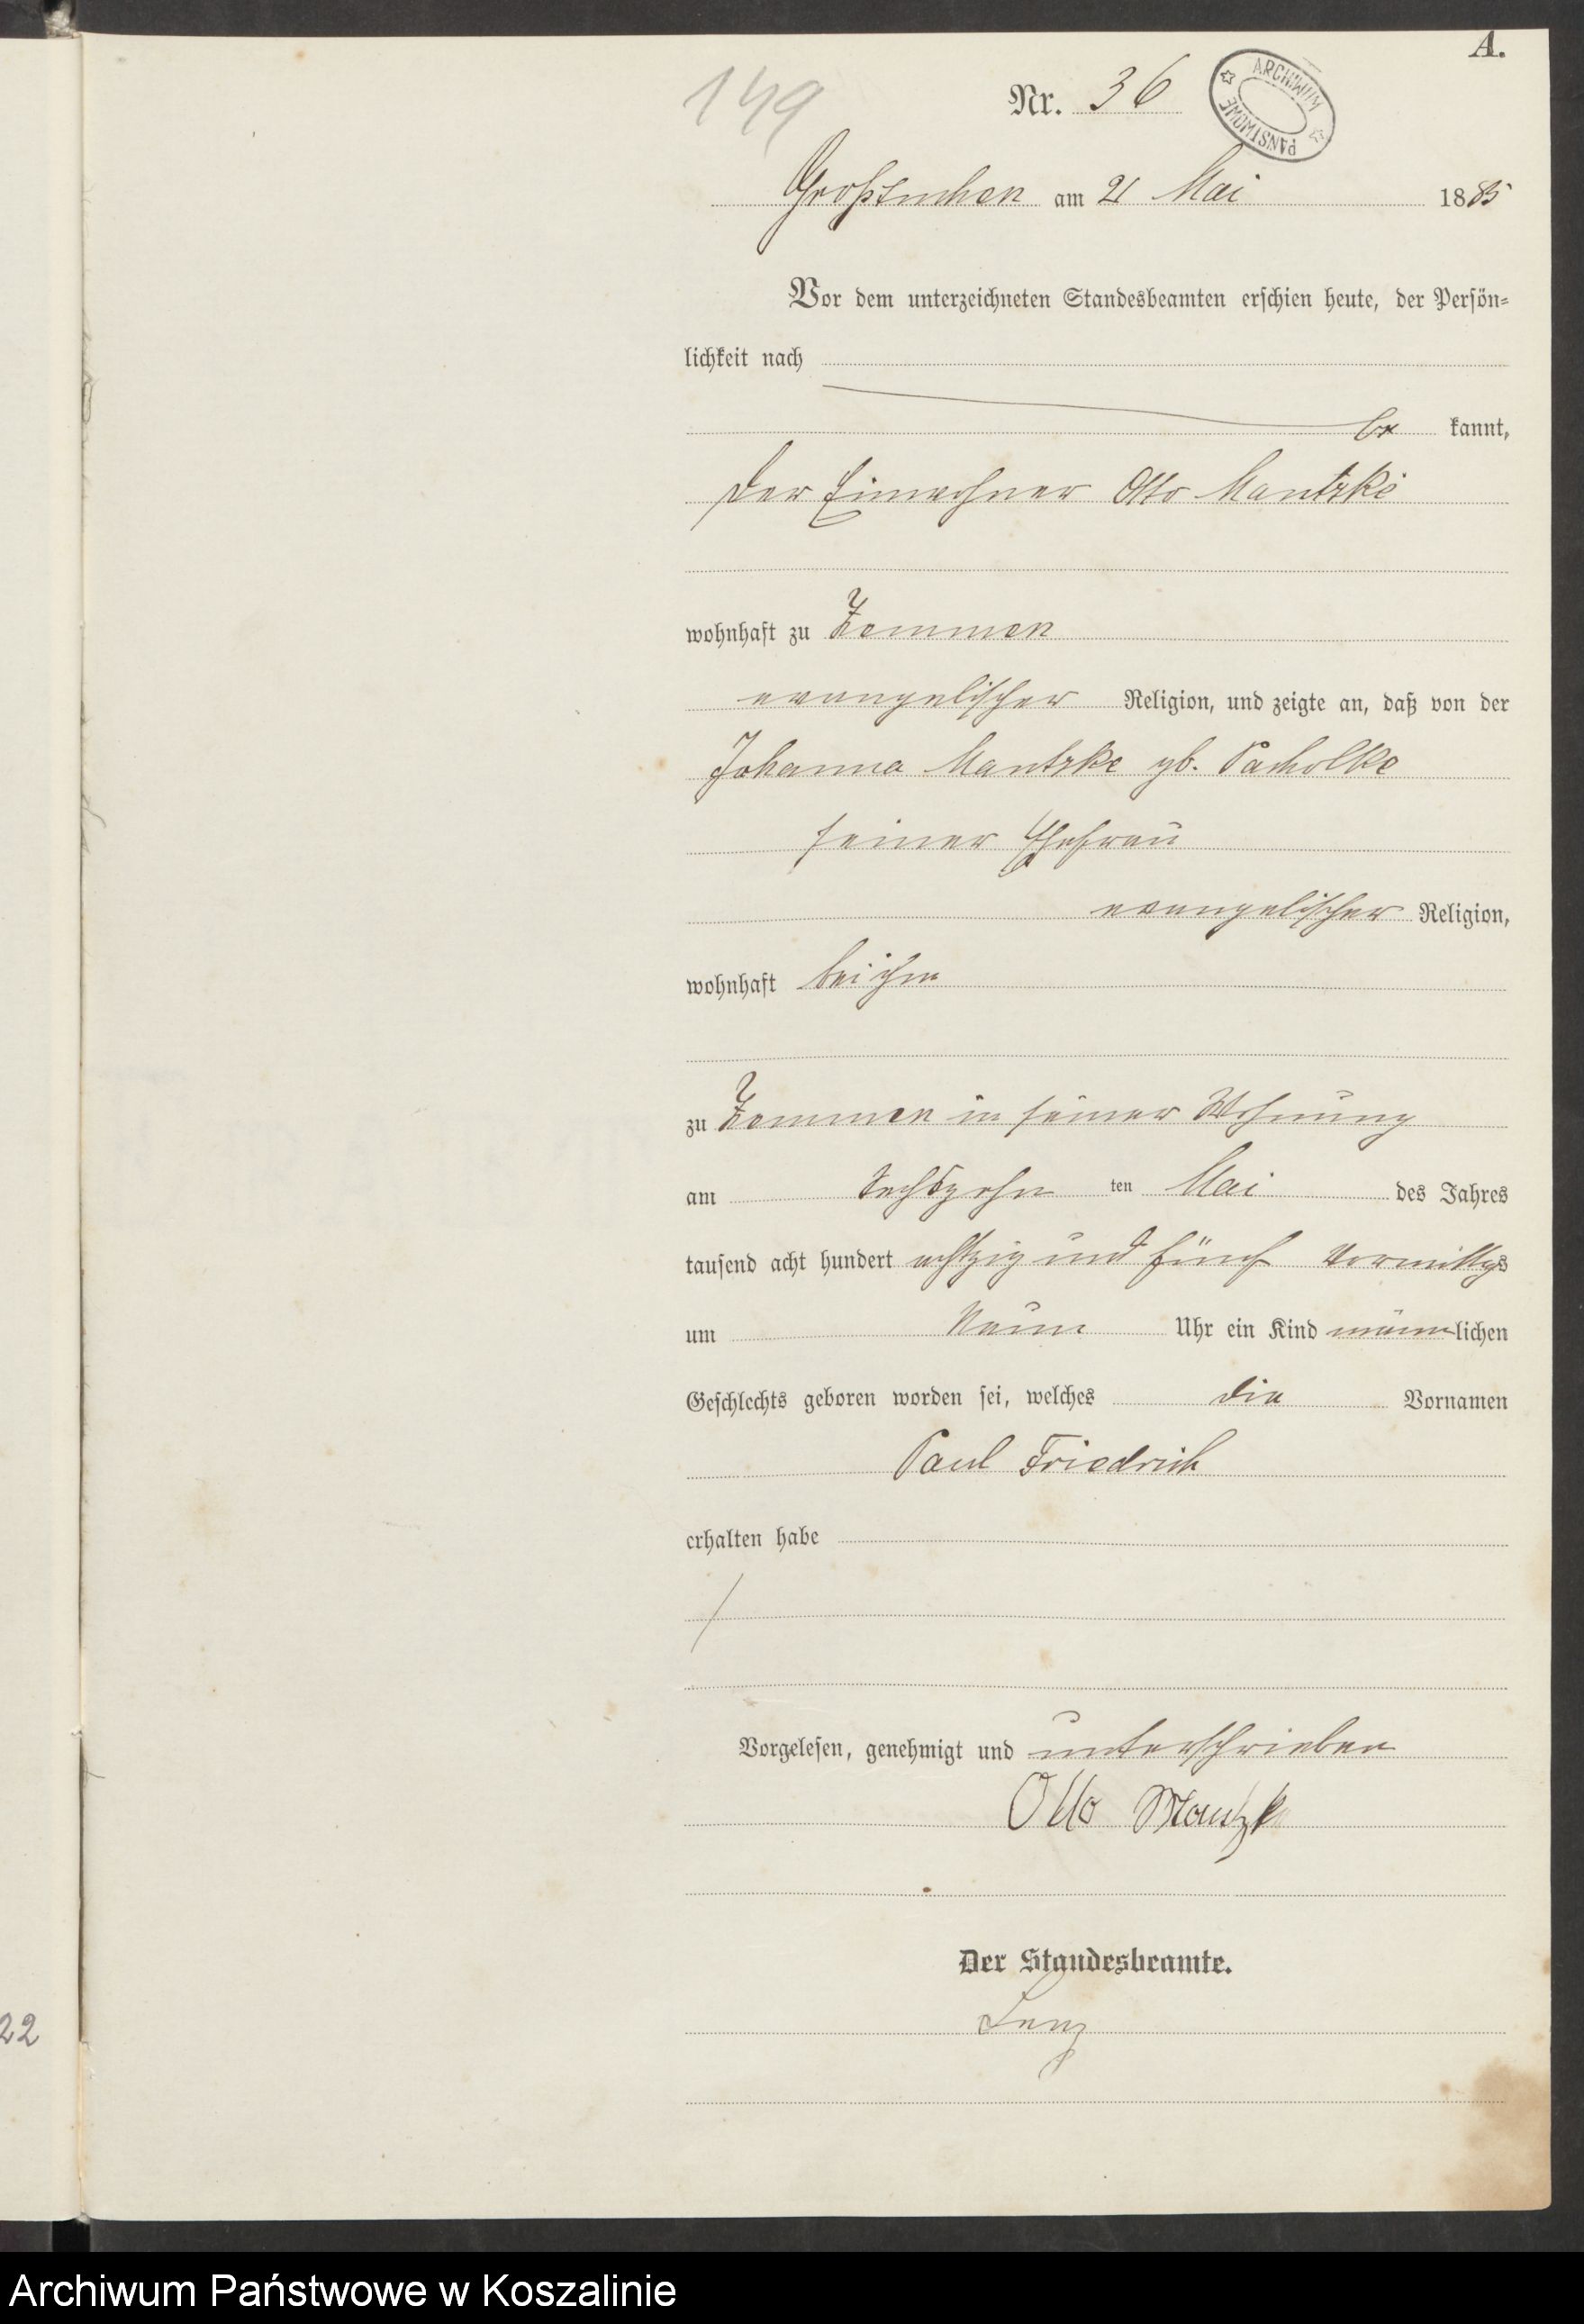 A.
149
Nr. 36
ARCHIWUM PAŃSTWOWE
Großtuchen am 21 Mai 1885
Vor dem unterzeichneten Standesbeamten erschien heute, der Persön-
lichkeit nach
be kannt,
der Einwohner Otto Mantzke
wohnhaft zu Zemmen
evangelischer Religion, und zeigte an, daß von der
Johanna Mantzke gb. Pacholke
seiner Ehefrau
evangelischer Religion,
wohnhaft bei ihm
zu Zemmen in seiner Wohnung
am sechszehn ten Mai des Jahres
tausend acht hundert achtzig und fünf Vormittgs
um Neun Uhr ein Kind männlichen
Geschlechts geboren worden sei, welches die Vornamen
Paul Friedrich
erhalten habe
Vorgelesen, genehmigt und unterschrieben
Otto Mantzk
Der Standesbeamte.
Lenz
22
Archiwum Państwowe w Koszalinie